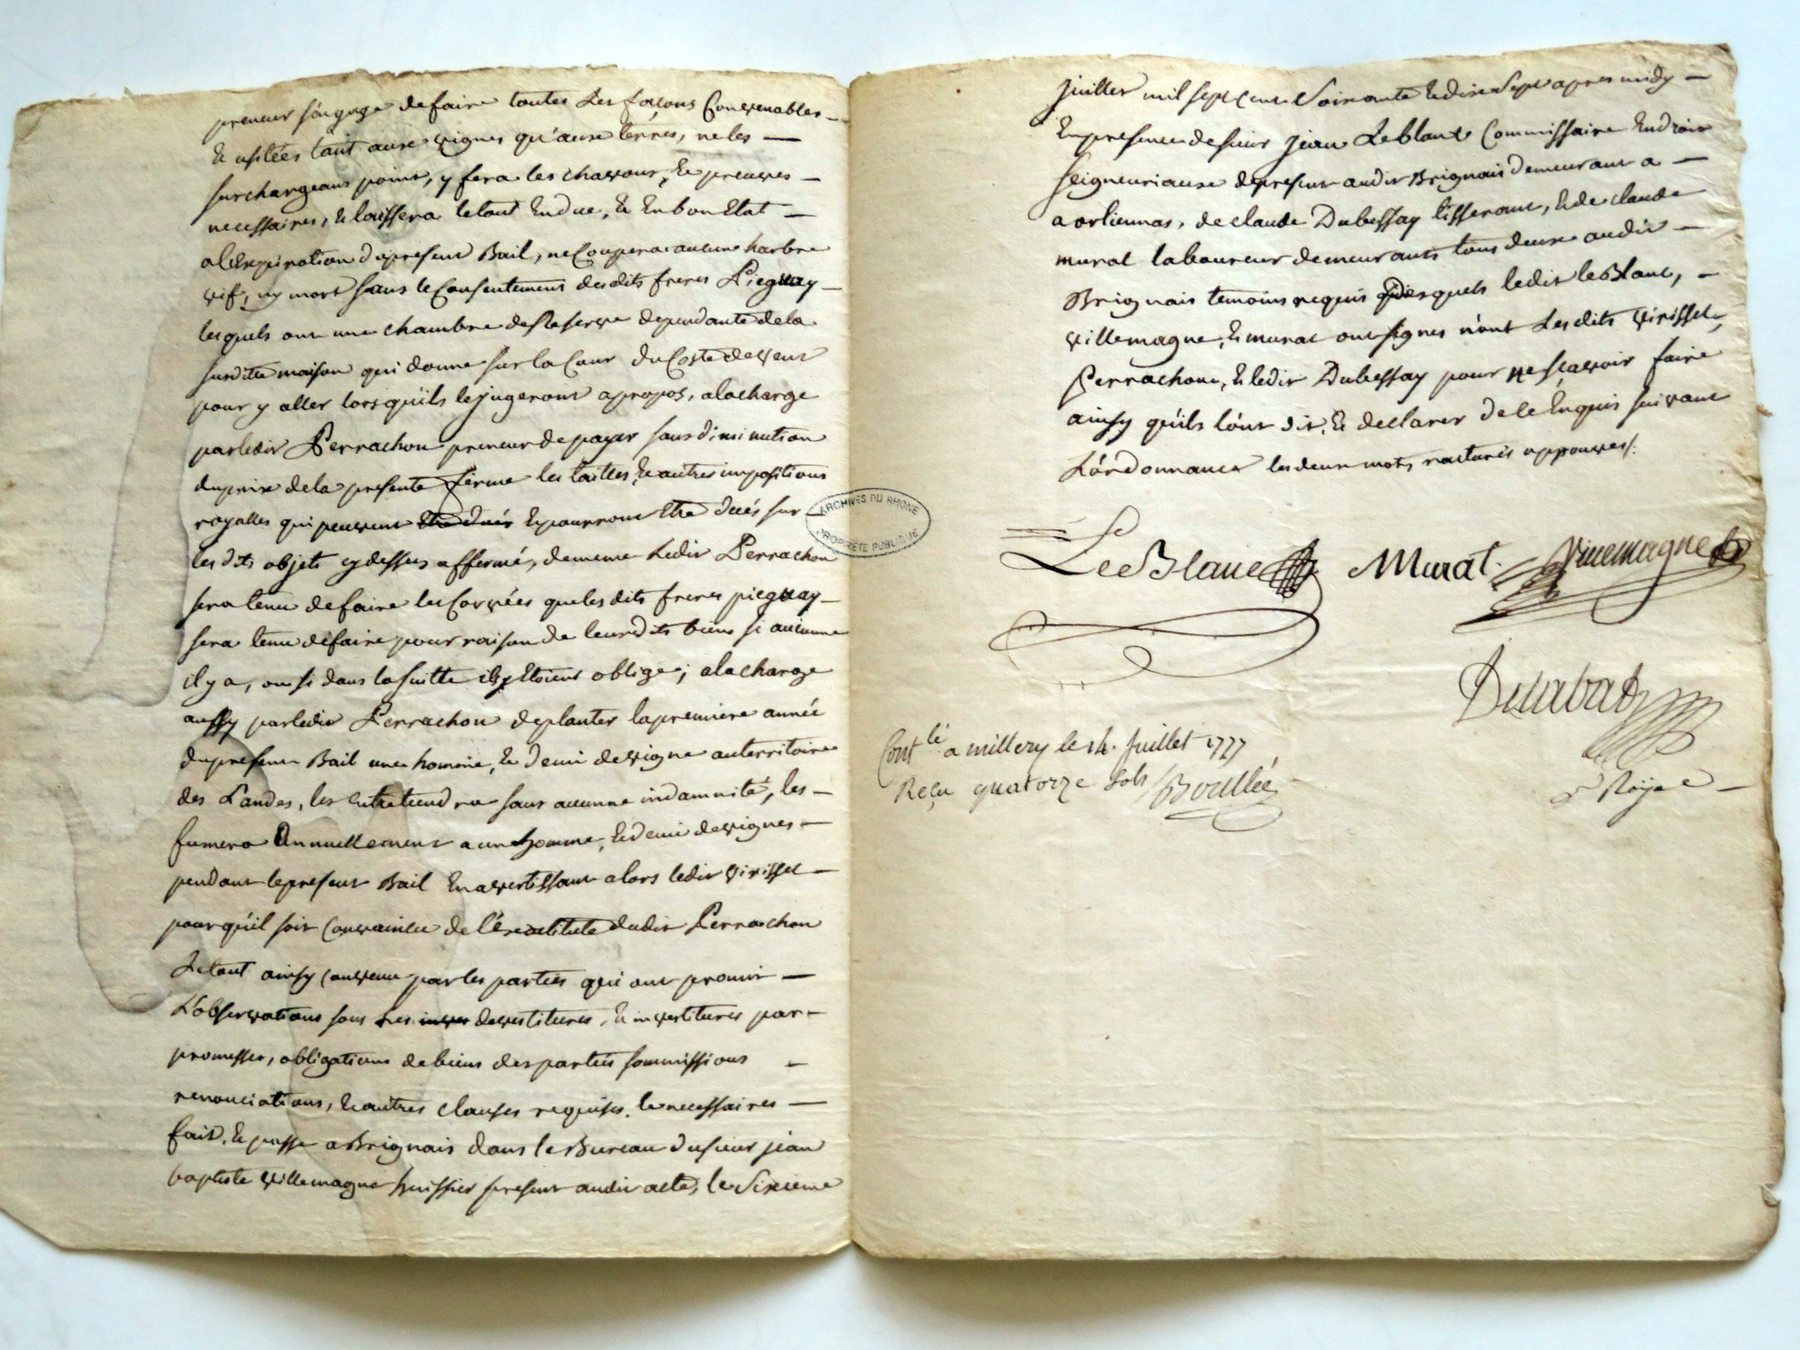 preneur s'engage de faire toutes Les façons Convenables
& usitées tant aux vignes qu'aux terres, ne les
surchargeans point, y fera les chavons, & preuves
necessaires, & laissera le tout En due, & En bon Etat
a l'Expiration du present Bail, ne Coupera aucune harbre
vif, ny mort sans le Consentement desdits freres Pieguay
lesquels ont une chambre de Reserve dependante de la
susditte maison qui donne sur la Cour du Coste de vent
pour y aller lorsqu'ils le jugeront apropos, ala charge
par ledit Perrachon preneur de payer sans diminution
du prix de la presente ferme les tailles, & autres impositions
royalles qui peuvent Etre dués Et pourront Etre dués sur
lesdits objets cy dessus affermés, de meme Ledit Perrachon
sera tenu de faire les Corvées que lesdits freres pieguay
sera tenu de faire pour raison de leursdits biens si aucunne
il y a, ou si dans la suitte ils y Etoient oblige; ala charge
aussy par ledit Perrachon de planter la premiere année
du present Bail une homme, & demi de vigne au territoire
des Landes, les entretiendra sans aucunne indamnité, les
fumera Annuellement a un homme, & demi de vignes
pendant le present Bail En avertissant alors ledit virissel
pour qu'il soit Convaincu de l'éxactitude dudit Perrachon
Le tout ainsy Convenu par les parties qui ont promir
L'observations sous les inves devestitures, & investitures par
promesses, obligations de biens des parties sommissions
renonciations, & autres clauses requises, & necessaires
fait, & passe a Brignais dans le Bureau du sieur jean
baptiste villemagne huissier present audit acte, le Sixieme
juillet mil sept Cent Soixante & dix Sept apres midy
En presence de sieur jean Leblanc Commissaire En droit
seigneuriaux de present audit Brignais demeurant a
a orliennas, de claude Dubessay tisserant, & de claude
murat laboureur demeurants tous deux audit
Brignais temoins requis desquels ledit leblanc,
villemagne, & murat ont signes n'ont Lesdits virissel,
Perrachon, & ledit Dubessay pour ne sçavoir faire
ainsy qu'ils l'ont dit, & declarer de ce Enquis suivant
L'ordonnance les deux mots raturés approuves/.
ARCHIVES DU RHONE
PROPRIÉTÉ PUBLIQUE
LeBlanc Murat. Villemagne
Delabat
Nore Royal
Contlé a millery le 14. Juillet 1777
Reçu quatorze sols Boullée